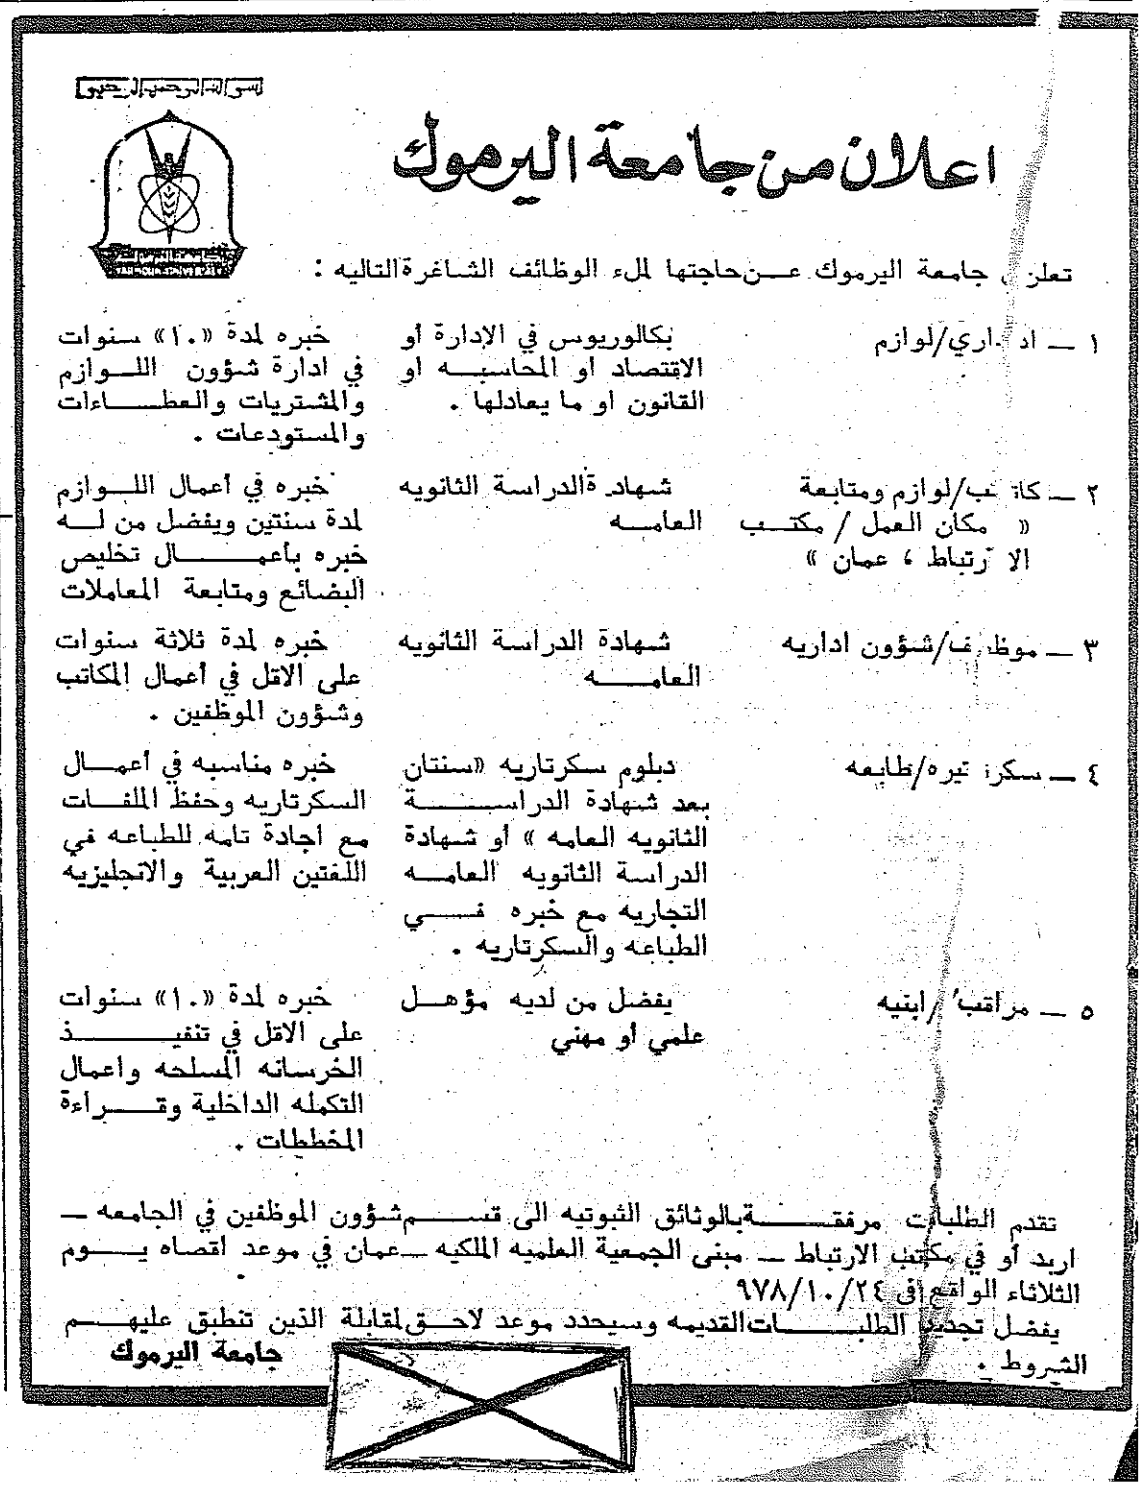 بسم الله الرحمن الرحيم
اعلان من جامعة اليرموك
تعلن جامعة اليرموك عن حاجتها لملء الوظائف الشاغرة التاليه :
١ — اداري/لوازم
بكالوريوس في الإدارة أو
الاقتصاد او المحاسبه او
القانون او ما يعادلها .
خبره لمدة «١٠» سنوات
في ادارة شؤون اللوازم
والمشتريات والعطاءات
والمستودعات .
٢ — كاتب/لوازم ومتابعة
« مكان العمل / مكتب
الارتباط ، عمان »
شهادة الدراسة الثانويه
العامه
خبره في أعمال اللوازم
لمدة سنتين ويفضل من له
خبره بأعمال تخليص
البضائع ومتابعة المعاملات
٣ — موظف/شؤون اداريه
شهادة الدراسة الثانويه
العامه
خبره لمدة ثلاثة سنوات
على الاقل في أعمال المكاتب
وشؤون الموظفين .
٤ — سكرتيره/طابعه
دبلوم سكرتاريه «سنتان
بعد شهادة الدراسة
الثانويه العامه » أو شهادة
الدراسة الثانويه العامه
التجاريه مع خبره في
الطباعه والسكرتاريه .
خبره مناسبه في أعمال
السكرتاريه وحفظ الملفات
مع اجادة تامه للطباعه في
اللغتين العربية والانجليزيه
٥ — مراقب /ابنيه
يفضل من لديه مؤهل
علمي أو مهني
خبره لمدة «١٠» سنوات
على الاقل في تنفيذ
الخرسانه المسلحه واعمال
التكمله الداخلية وقراءة
المخططات .
تقدم الطلبات مرفقة بالوثائق الثبوتيه الى قسم شؤون الموظفين في الجامعه —
اربد أو في مكتب الارتباط — مبنى الجمعية العلميه الملكيه — عمان في موعد اقصاه يوم
الثلاثاء الواقع في ٩٧٨/١٠/٢٤
يفضل تجديد الطلبات القديمه وسيحدد موعد لاحق لمقابلة الذين تنطبق عليهم
الشروط .
جامعة اليرموك